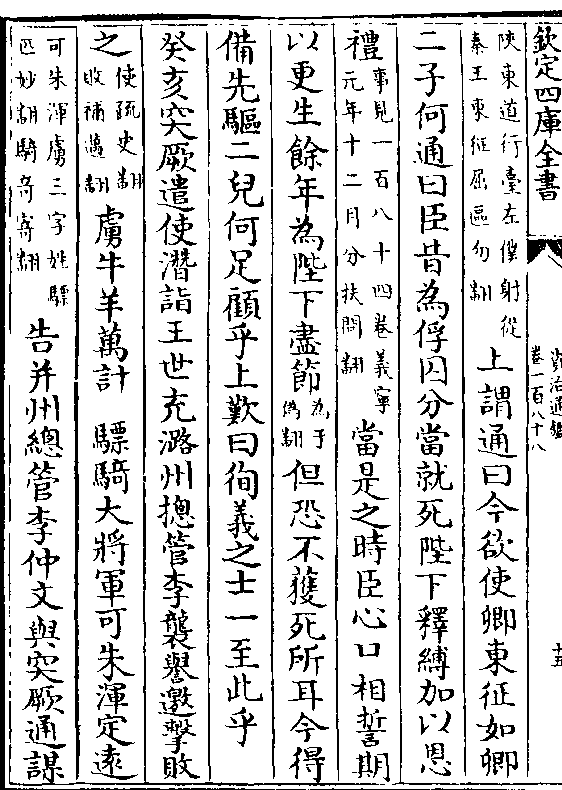 欽定四庫全書 資治通鑑 卷一百八十八 十五
陜東道行臺左僕射從秦王東征屈區勿翻 上謂通曰今欲使卿東征如卿
二子何通曰臣昔為俘囚分當就死陛下釋縛加以恩
禮事見一百八十四卷義寧元年十二月分扶問翻當是之時臣心口相誓期
以更生餘年為陛下盡節為于偽翻但恐不獲死所耳今得
備先驅二兒何足顧乎上歎曰徇義之士一至此乎
癸亥突厥遣使潛詣王世充潞州摠管李襲譽邀擊敗
之使疏史翻敗補邁翻虜牛羊萬計 驃騎大將軍可朱渾定遠
可朱渾虜三字姓驃匹妙翻騎奇寄翻告并州總管李仲文與突厥通謀